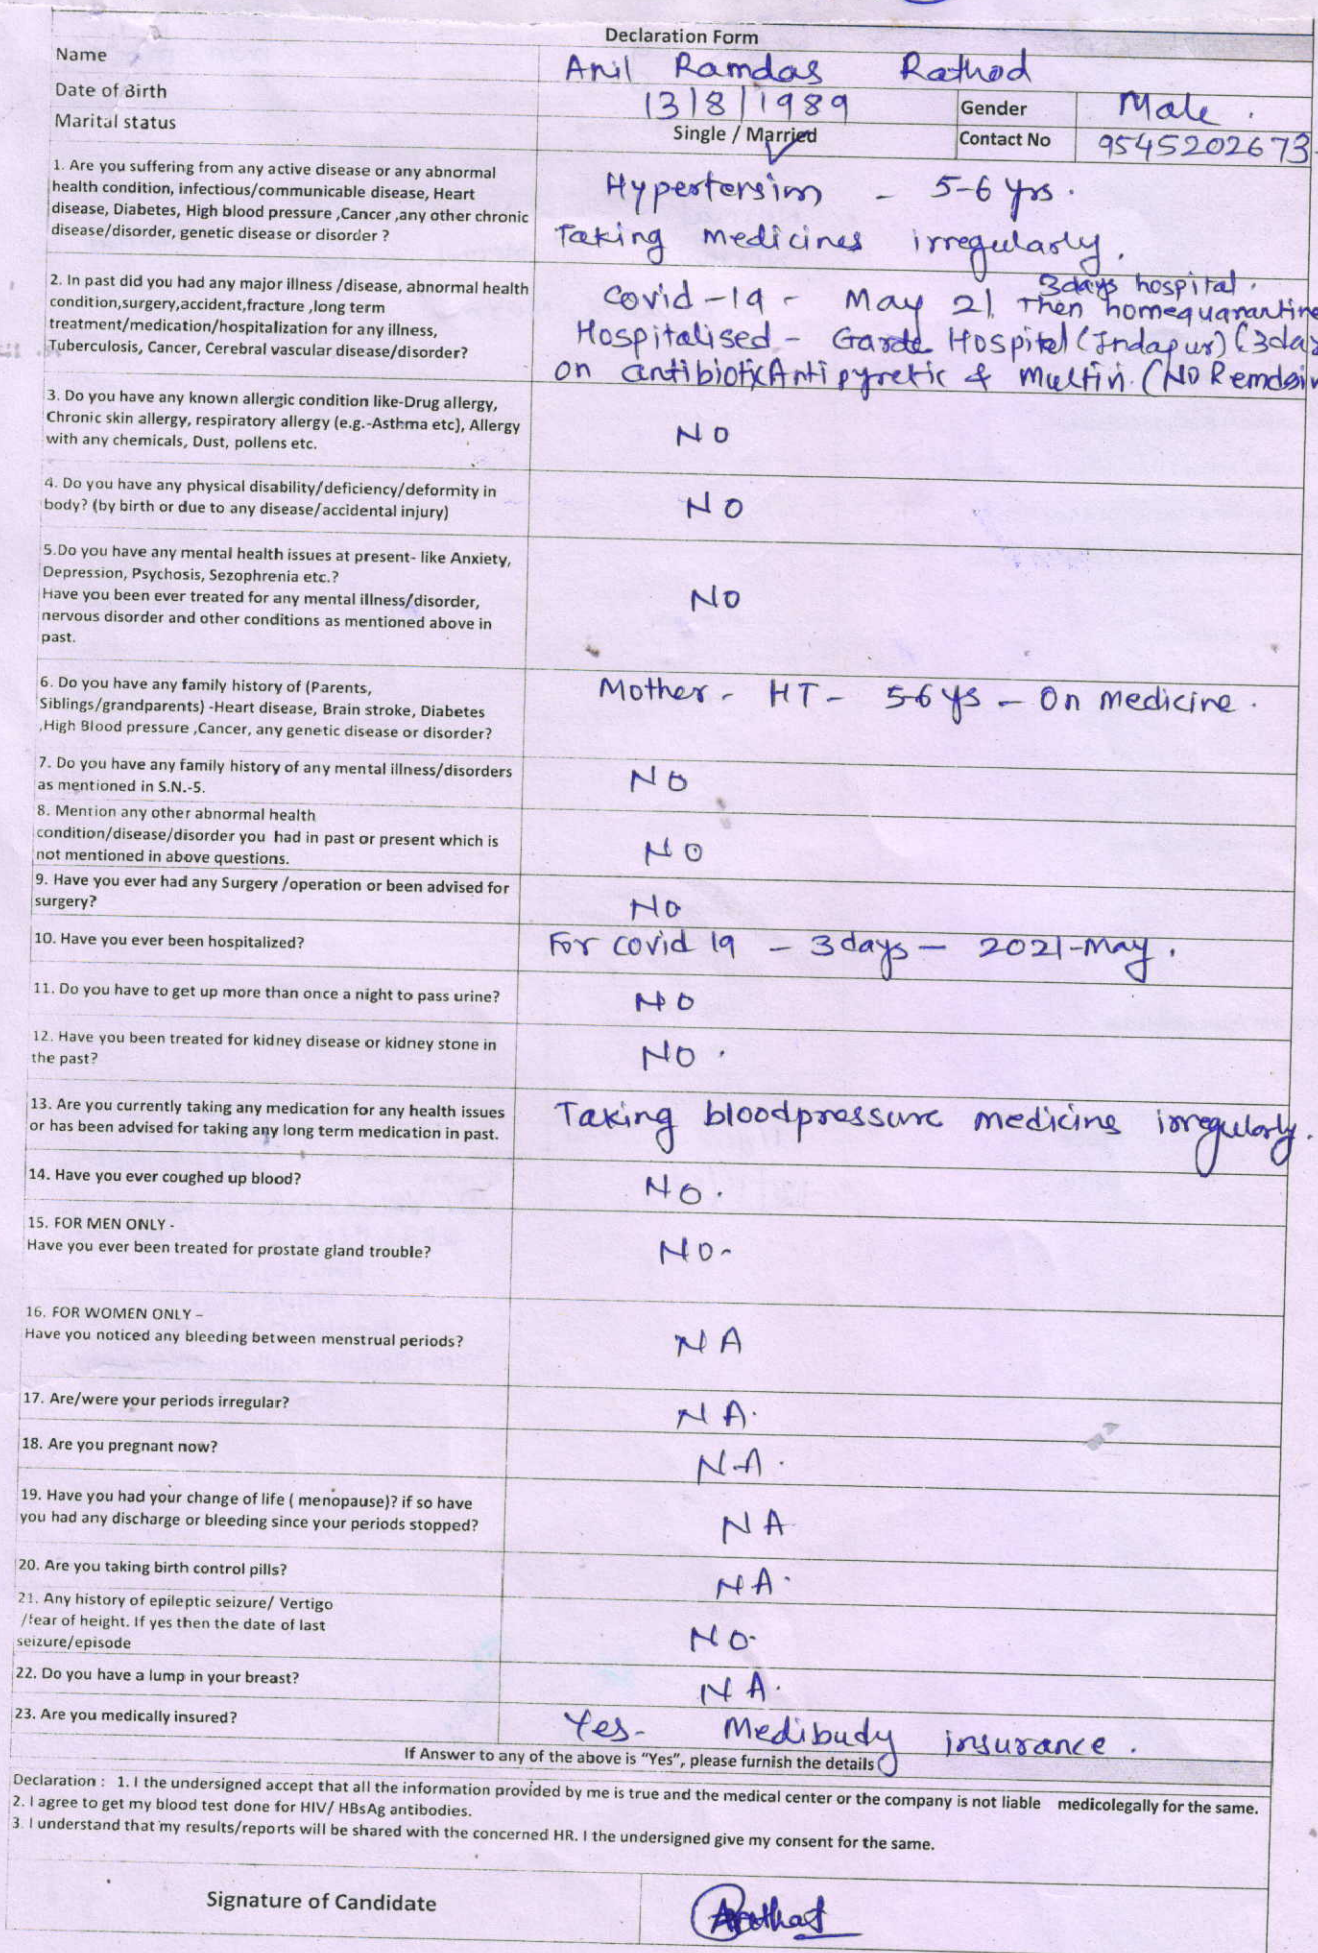 Declaration Form
Name Anil Ramdas Rathod
Date of Birth 13/8/1989 Gender Male .
Marital status Single / Married Contact No 9545202673
1. Are you suffering from any active disease or any abnormal
health condition, infectious/communicable disease, Heart
disease, Diabetes, High blood pressure ,Cancer ,any other chronic
disease/disorder, genetic disease or disorder ?
Hypertension - 5-6 yrs.
Taking medicines irregularly.
2. In past did you had any major illness /disease, abnormal health
condition,surgery,accident,fracture ,long term
treatment/medication/hospitalization for any illness,
Tuberculosis, Cancer, Cerebral vascular disease/disorder?
3days hospital.
Covid-19 - May 21, Then homequarantine
Hospitalised - Garde Hospital (Indapur) (3da
on antibiotix Antipyretic & Multivi. (NO Remdsiv
3. Do you have any known allergic condition like-Drug allergy,
Chronic skin allergy, respiratory allergy (e.g.-Asthma etc), Allergy
with any chemicals, Dust, pollens etc.
NO
4. Do you have any physical disability/deficiency/deformity in
body? (by birth or due to any disease/accidental injury)
NO
5.Do you have any mental health issues at present- like Anxiety,
Depression, Psychosis, Sezophrenia etc.?
Have you been ever treated for any mental illness/disorder,
nervous disorder and other conditions as mentioned above in
past.
NO
6. Do you have any family history of (Parents,
Siblings/grandparents) -Heart disease, Brain stroke, Diabetes
,High Blood pressure ,Cancer, any genetic disease or disorder?
Mother - HT - 5-6 ys - On medicine.
7. Do you have any family history of any mental illness/disorders
as mentioned in S.N.-5.
NO
8. Mention any other abnormal health
condition/disease/disorder you had in past or present which is
not mentioned in above questions.
NO
9. Have you ever had any Surgery /operation or been advised for
surgery?
NO
10. Have you ever been hospitalized? For covid 19 - 3days - 2021-May.
11. Do you have to get up more than once a night to pass urine? NO
12. Have you been treated for kidney disease or kidney stone in
the past?
NO.
13. Are you currently taking any medication for any health issues
or has been advised for taking any long term medication in past.
Taking bloodpressure medicine irregularly.
14. Have you ever coughed up blood? NO.
15. FOR MEN ONLY -
Have you ever been treated for prostate gland trouble? NO-
16. FOR WOMEN ONLY –
Have you noticed any bleeding between menstrual periods? NA
17. Are/were your periods irregular? NA.
18. Are you pregnant now? NA.
19. Have you had your change of life ( menopause)? if so have
you had any discharge or bleeding since your periods stopped?
NA
20. Are you taking birth control pills? NA.
21. Any history of epileptic seizure/ Vertigo
/fear of height. If yes then the date of last
seizure/episode
NO-
22. Do you have a lump in your breast? NA.
23. Are you medically insured? Yes- Medibudy insurance.
If Answer to any of the above is “Yes”, please furnish the details
Declaration : 1. I the undersigned accept that all the information provided by me is true and the medical center or the company is not liable medicolegally for the same.
2. I agree to get my blood test done for HIV/ HBsAg antibodies.
3. I understand that my results/reports will be shared with the concerned HR. I the undersigned give my consent for the same.
Signature of Candidate